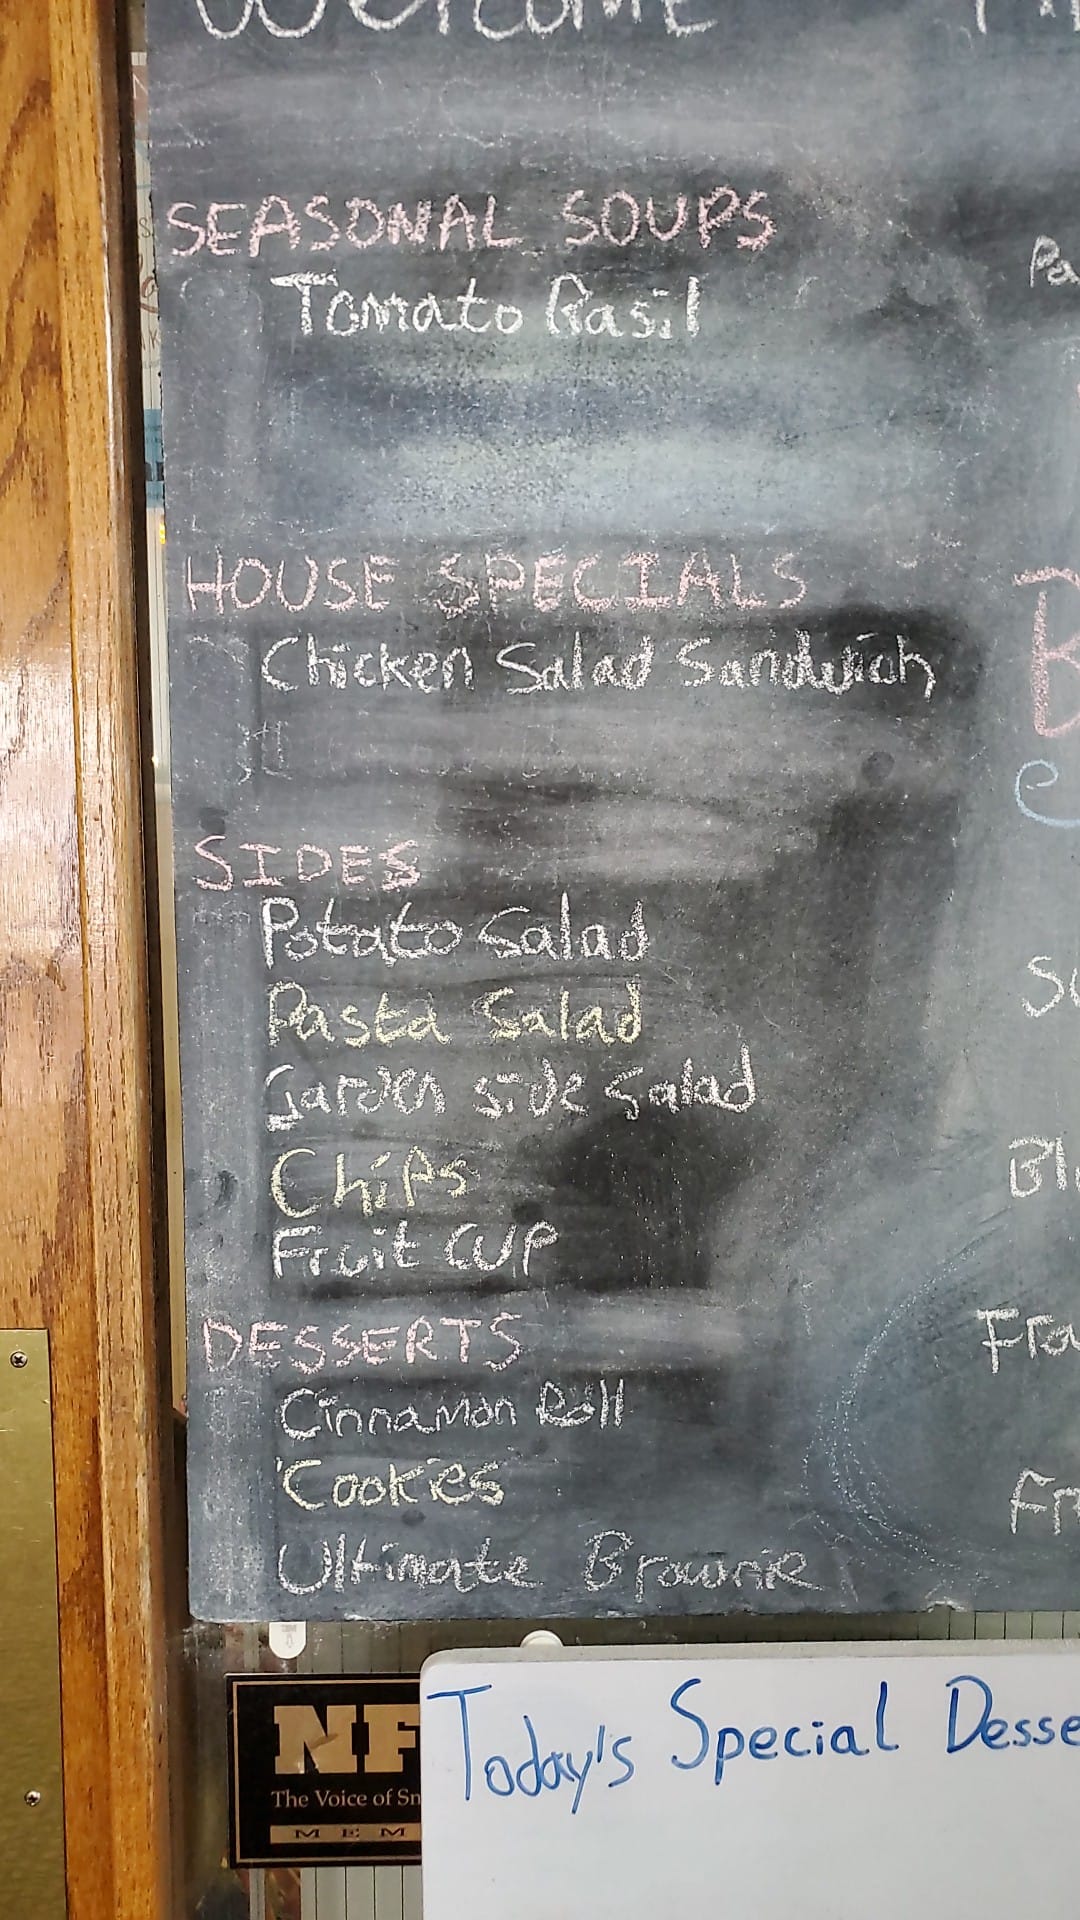 Welcome
SEASONAL SOUPS
Tomato Basil
HOUSE SPECIALS
Chicken Salad Sandwich
SIDES
Potato Salad
Pasta Salad
Garden side Salad
Chips
Fruit CUP
DESSERTS
Cinnamon Roll
Cookies
Ultimate Brownie
Pa
B
C
Fra
NF
The Voice of Sm
MEM
Today's Special Desse